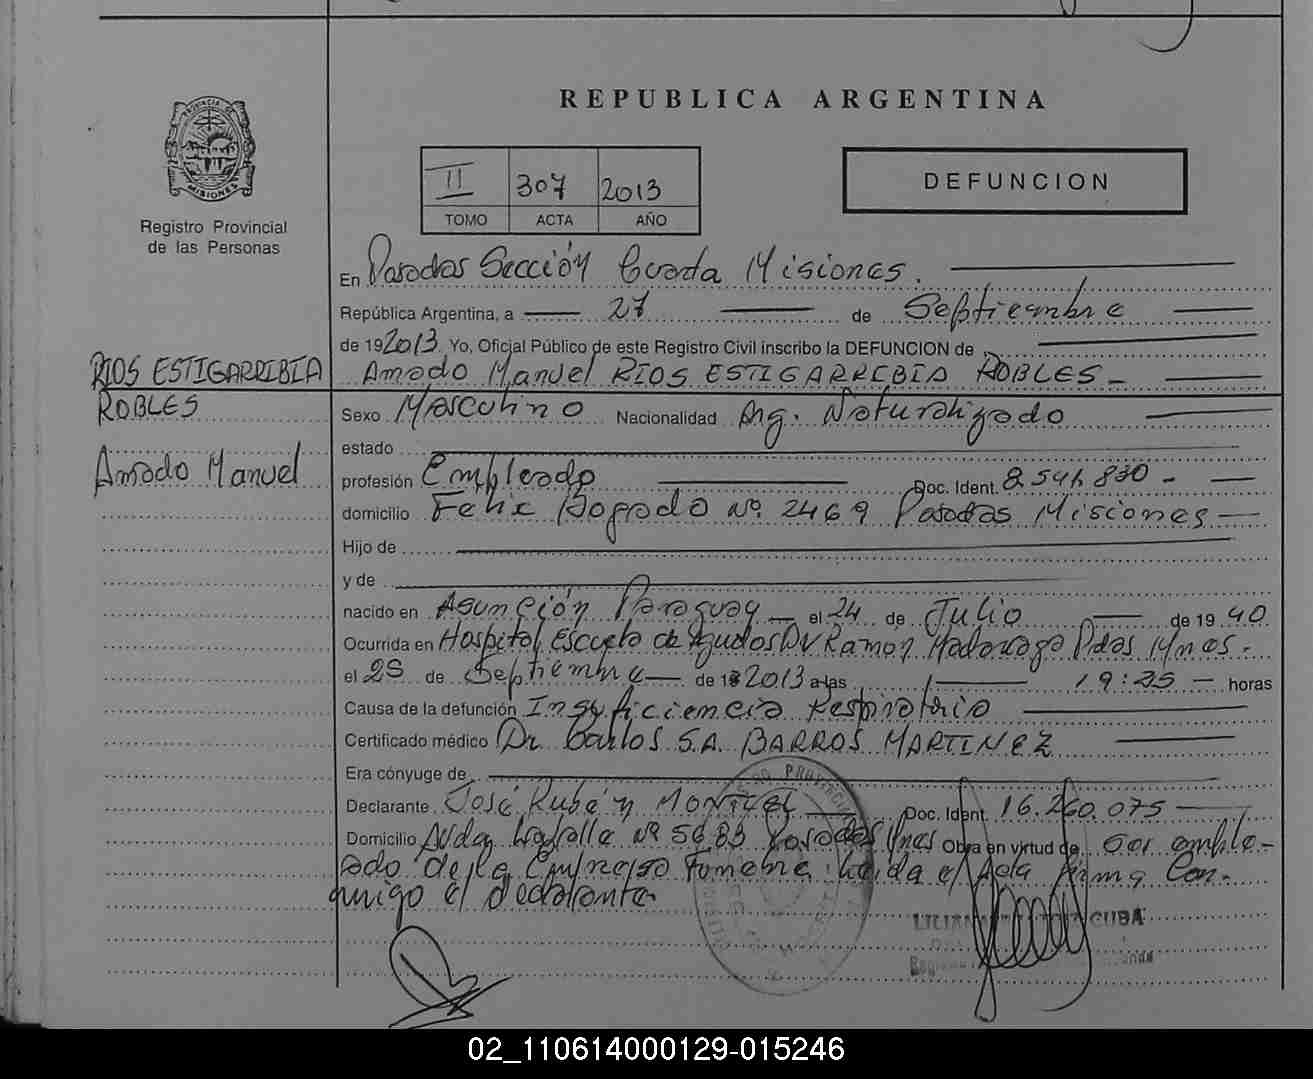 REPUBLICA ARGENTINA
PROVINCIA DE
MISIONES
Registro Provincial
de las Personas
II 307 2013
TOMO ACTA AÑO
DEFUNCION
En Posadas Sección Cuarta Misiones.
República Argentina, a 27 de Septiembre
de 192013 Yo, Oficial Público de este Registro Civil inscribo la DEFUNCION de
RIOS ESTIGARRIBIA
ROBLES
Amado Manuel
Amado Manuel RIOS ESTIGARRIBIA ROBLES -
Sexo Masculino Nacionalidad Arg. Naturalizado
estado
profesión Empleado Doc. Ident. 8.541.830 -
domicilio Felix Bogado Nº 2469 Posadas Misiones
Hijo de
y de
nacido en Asunción Paraguay el 24 de Julio de 19 40.
Ocurrida en Hospital Escuela de Agudos Dr Ramon Madariaga Pdas Mnes.
el 25 de Septiembre de 2013 a las 19:35 horas
Causa de la defunción Insuficiencia Respiratoria
Certificado médico Dr. Carlos S.A. BARROS MARTINEZ
Era cónyuge de
Declarante José Rubén MONTIEL Doc. Ident. 16.260.075
Domicilio Avda Nº 5683 Posadas Mnes Obra en virtud de ser emple-
ado de la Empresa Funebre leida el Acta firma Con-
migo el declarante
CUBA
02_110614000129-015246